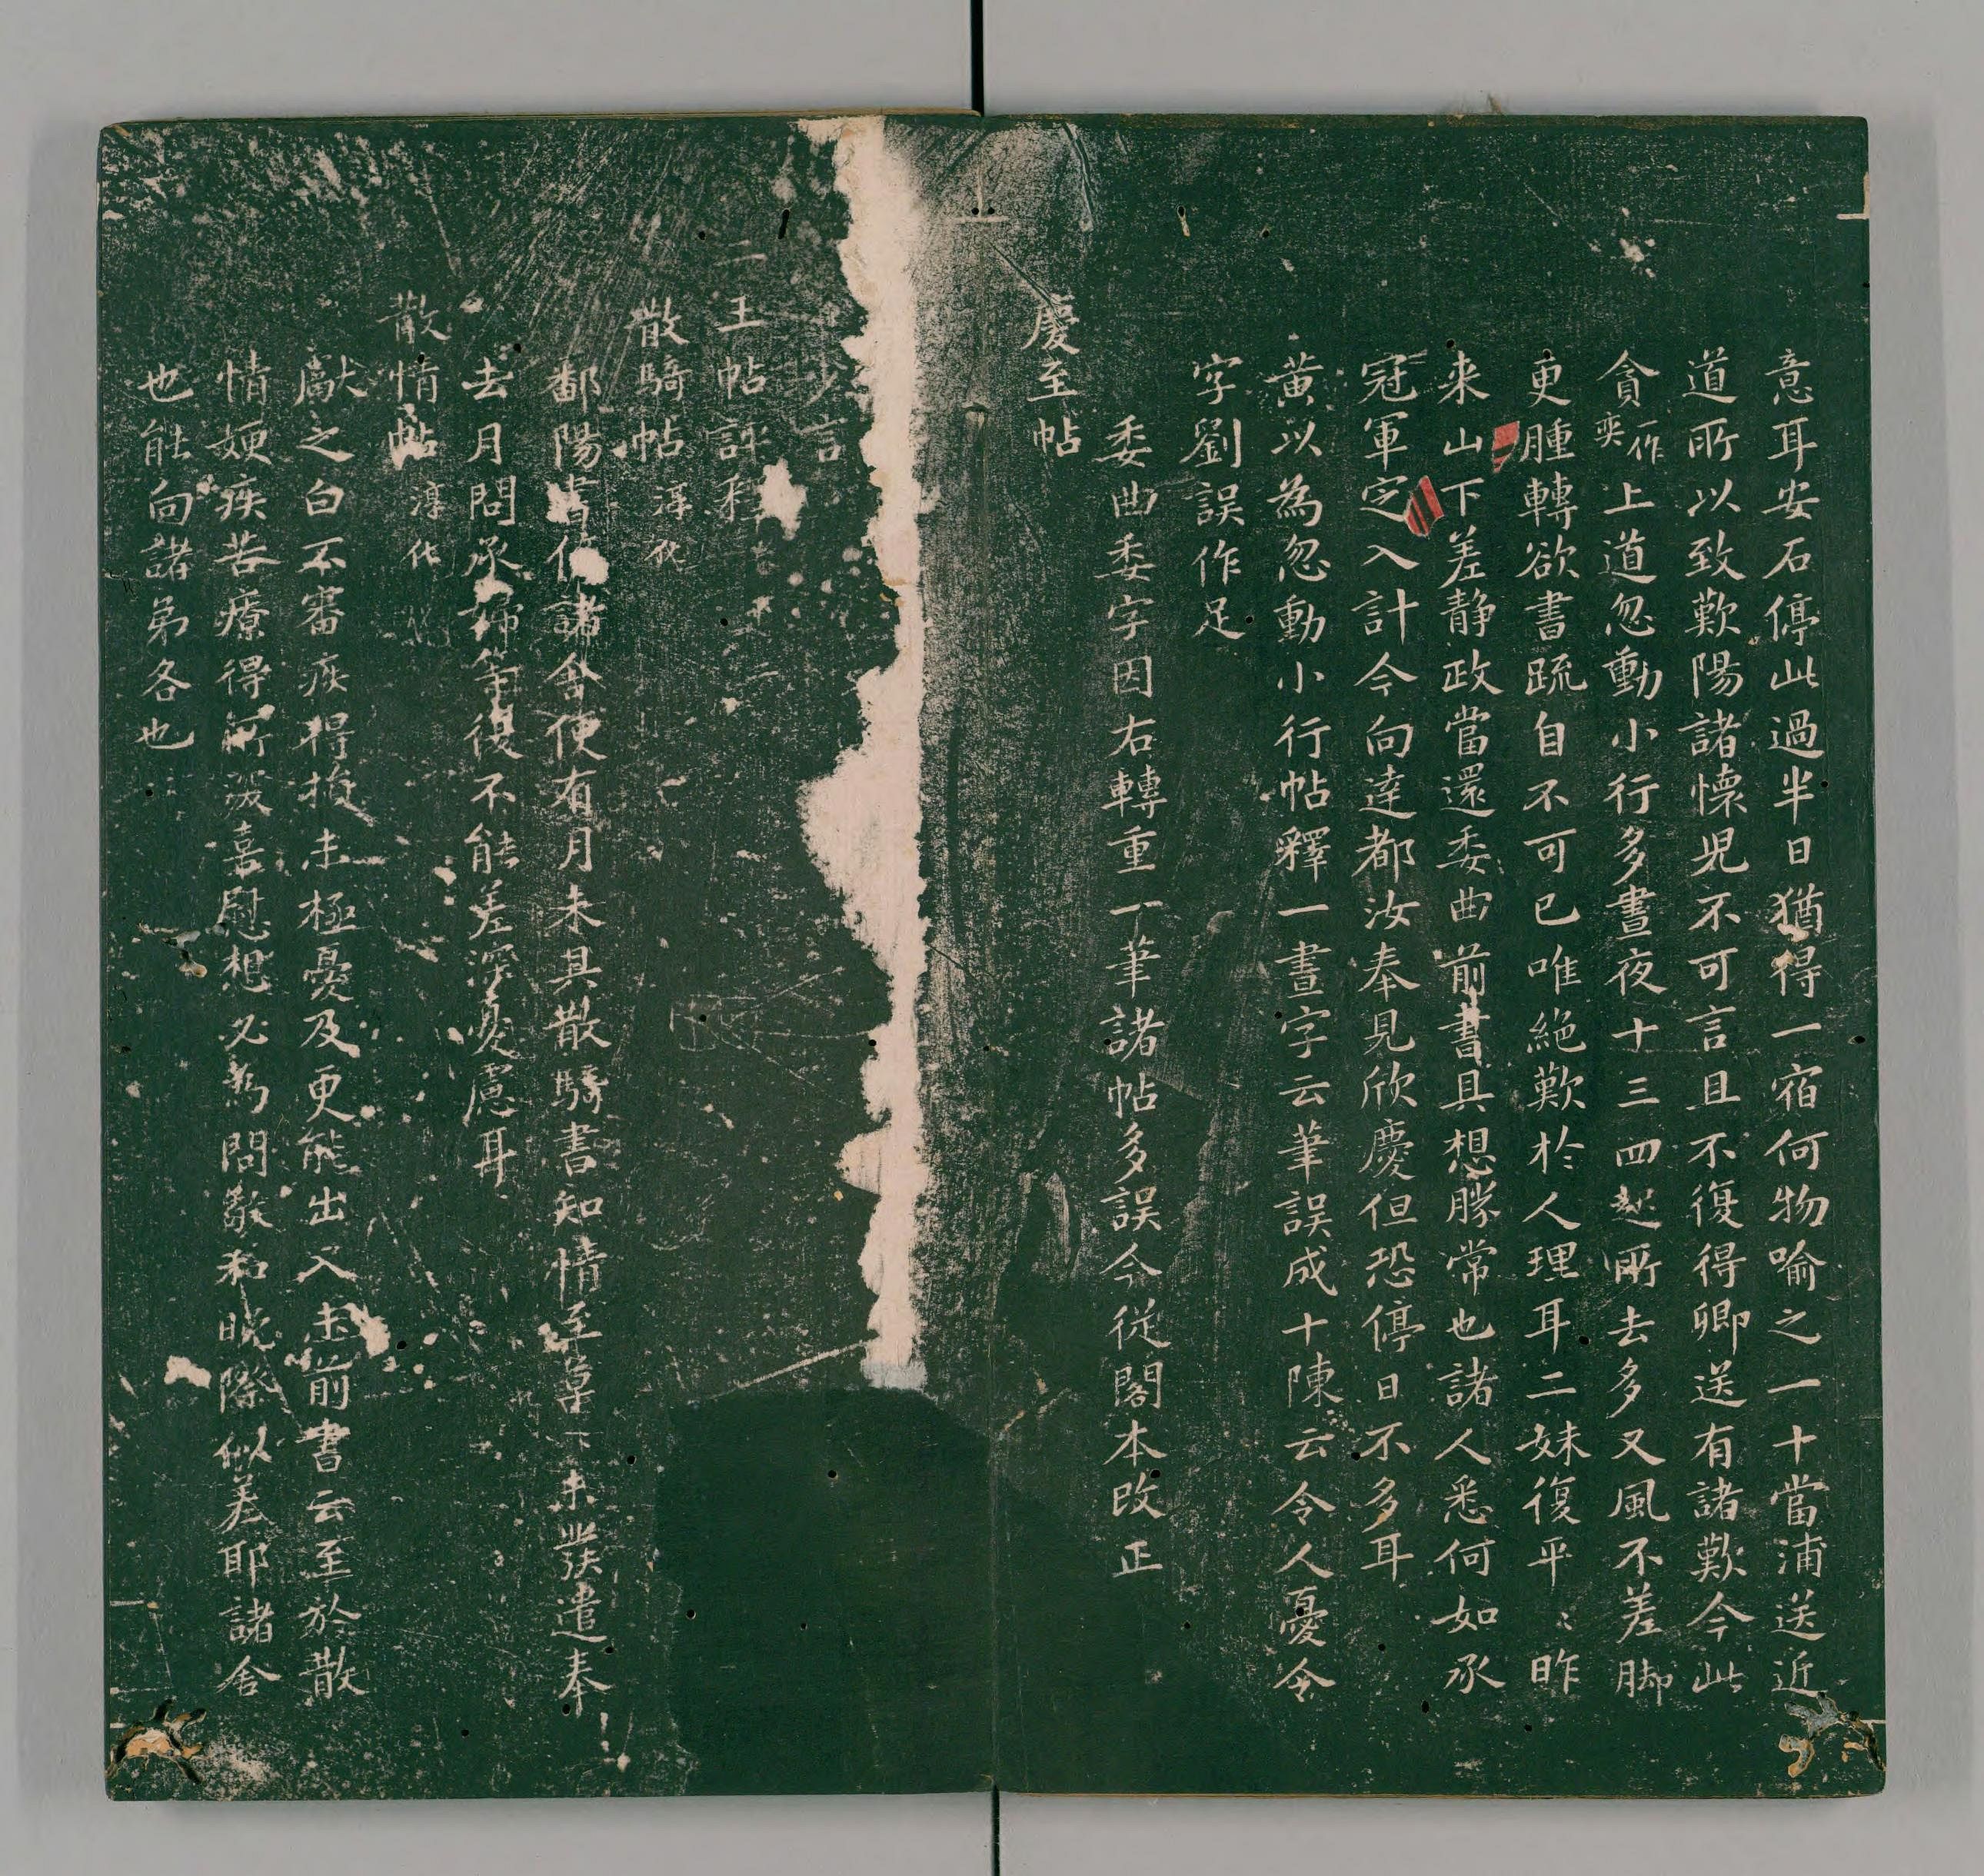 意耳安石停此過半日猶得一宿何物喻之一十當浦送近
道所以致歎陽諸懷兒不可言且不復得卿送有諸歎今此
貪一作奕上道忽動小行多晝夜十三四起所去多又風不差脚
更腫轉欲書疏自不可已唯絶歎於人理耳二妹復平〻昨
来山下差静政當還委曲前書具想勝常也諸人悉何如承
冠軍定入計今向達都汝奉見欣慶但恐停日不多耳
黄以為忽動小行帖釋一晝字云筆誤成十陳云令人憂令
字劉誤作足
委曲委字因右轉重一筆諸帖多誤今從閣本改正
慶至帖
少言
二王帖評釋
散騎帖 淳化
鄱陽書停諸舍使有月未具散騎書知情至草〻未發遣奉
去月問承婦等復不能差深憂慮耳
散情帖 淳化
獻之白不審疾得損未極憂及更能出入未前書云至於散
情娛疾苦療得所汲喜慰想必為問敬和晚際似差耶諸舍
也能向諸弟各也